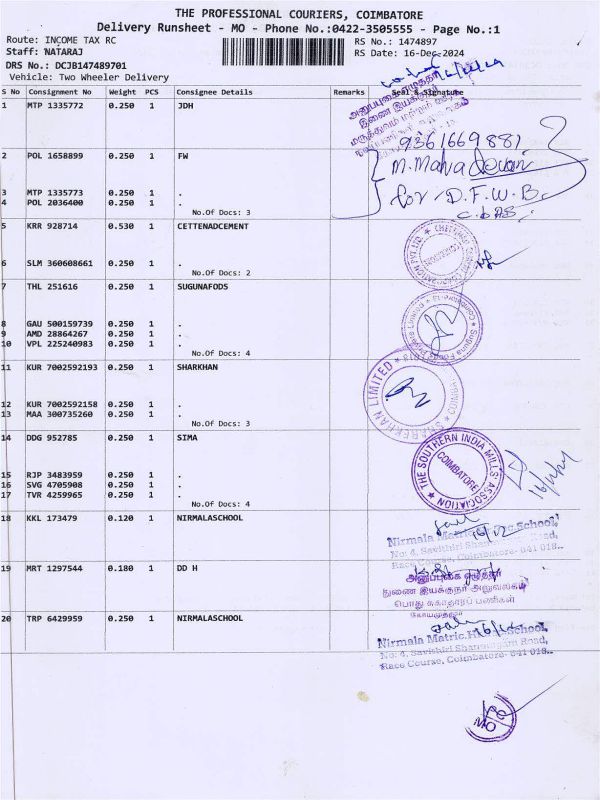 THE PROFESSIONAL COURIERS, COIMBATORE
Delivery Runsheet - MO - Phone No.:0422-3505555 - Page No.:1
Route: INCOME TAX RC
RS No.: 1474897
Staff: NATARAJ
RS Date: 16-Dec-2024
DRS No.: DCJB147489701
Vehicle: Two Wheeler Delivery
S No Consignment No Weight PCS Consignee Details Remarks Seal & Signature
1 MTP 1335772 0.250 1 JDH
9361669881
2 POL 1658899 0.250 1 FW
M. Mahadevan
3 MTP 1335773 0.250 1 .
4 POL 2036400 0.250 1 .
for D.F.W.B.
No.Of Docs: 3
5 KRR 928714 0.530 1 CETTENADCEMENT
6 SLM 360608661 0.250 1 .
No.Of Docs: 2
7 THL 251616 0.250 1 SUGUNAFODS
8 GAU 500159739 0.250 1 .
9 AMD 28864267 0.250 1 .
10 VPL 225240983 0.250 1 .
No.Of Docs: 4
11 KUR 7002592193 0.250 1 SHARKHAN
12 KUR 7002592158 0.250 1 .
13 MAA 300735260 0.250 1 .
No.Of Docs: 3
SHAREKHAN LIMITED
14 DDG 952785 0.250 1 SIMA
15 RJP 3483959 0.250 1 .
16 SVG 4705908 0.250 1 .
17 TVR 4259965 0.250 1 .
No.Of Docs: 4
THE SOUTHERN INDIA MILLS' ASSOCIATION
COIMBATORE
16/12/24
18 KKL 173479 0.120 1 NIRMALASCHOOL
16/12
Nirmala Matric.Hr.Sec.School,
No: 4, Savithiri Shanmugam Road,
Race Course, Coimbatore- 641 018..
19 MRT 1297544 0.180 1 DD H
துணை இயக்குநர் அலுவலகம்
பொது சுகாதாரப் பணிகள்
கோயமுத்தூர்
20 TRP 6429959 0.250 1 NIRMALASCHOOL
Nirmala Matric.Hr.Sec.School,
No: 4, Savithiri Shanmugam Road,
Race Course, Coimbatore- 641 018..
MO